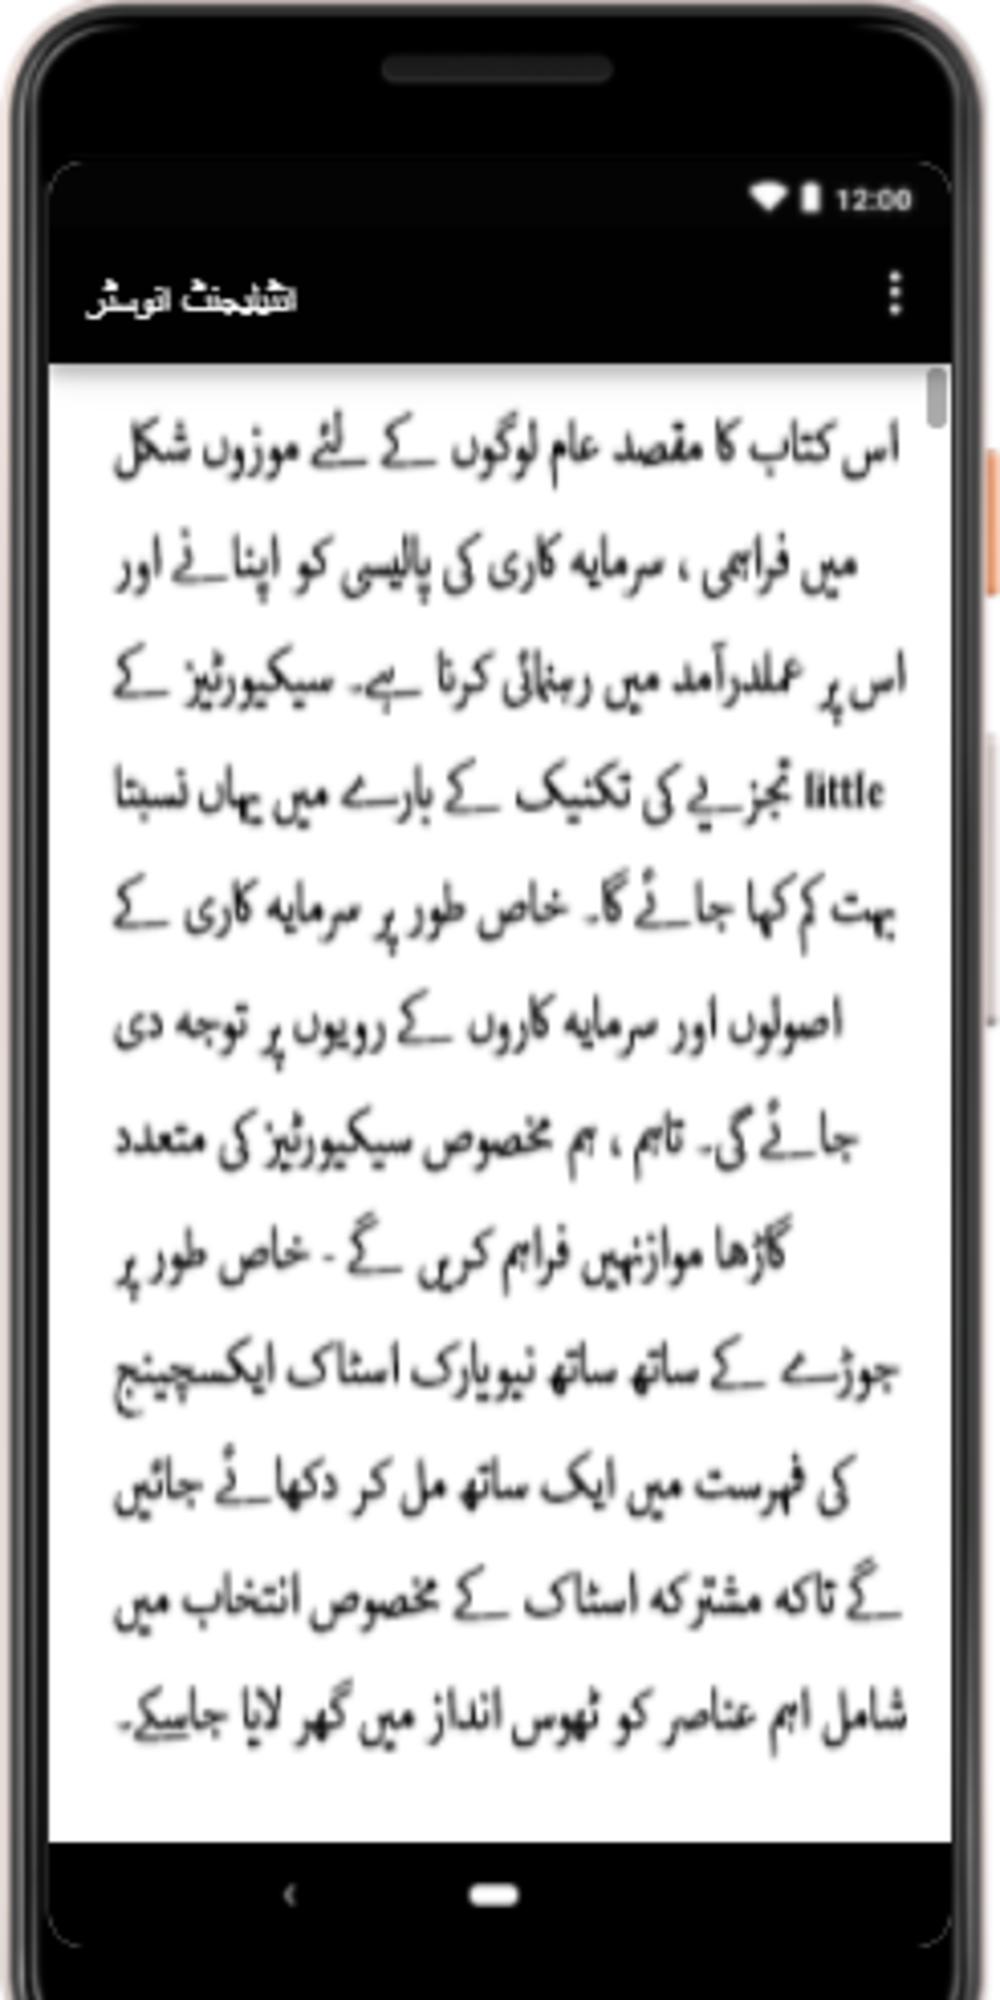 12:00
انٹیلیجنٹ انویسٹر
اس کتاب کا مقصد عام لوگوں کے لئے موزوں شکل
میں فراہمی ، سرمایہ کاری کی پالیسی کو اپنانے اور
اس پر عملدرآمد میں رہنمائی کرنا ہے۔ سیکیورٹیز کے
little تجزیے کی تکنیک کے بارے میں یہاں نسبتا
بہت کم کہا جائے گا۔ خاص طور پر سرمایہ کاری کے
اصولوں اور سرمایہ کاروں کے رویوں پر توجہ دی
جائے گی۔ تاہم ، ہم مخصوص سیکیورٹیز کی متعدد
گاڑھا موازنہیں فراہم کریں گے - خاص طور پر
جوڑے کے ساتھ ساتھ نیویارک اسٹاک ایکسچینج
کی فہرست میں ایک ساتھ مل کر دکھائے جائیں
گے تاکہ مشترکہ اسٹاک کے مخصوص انتخاب میں
شامل اہم عناصر کو ٹھوس انداز میں گھر لایا جاسکے۔